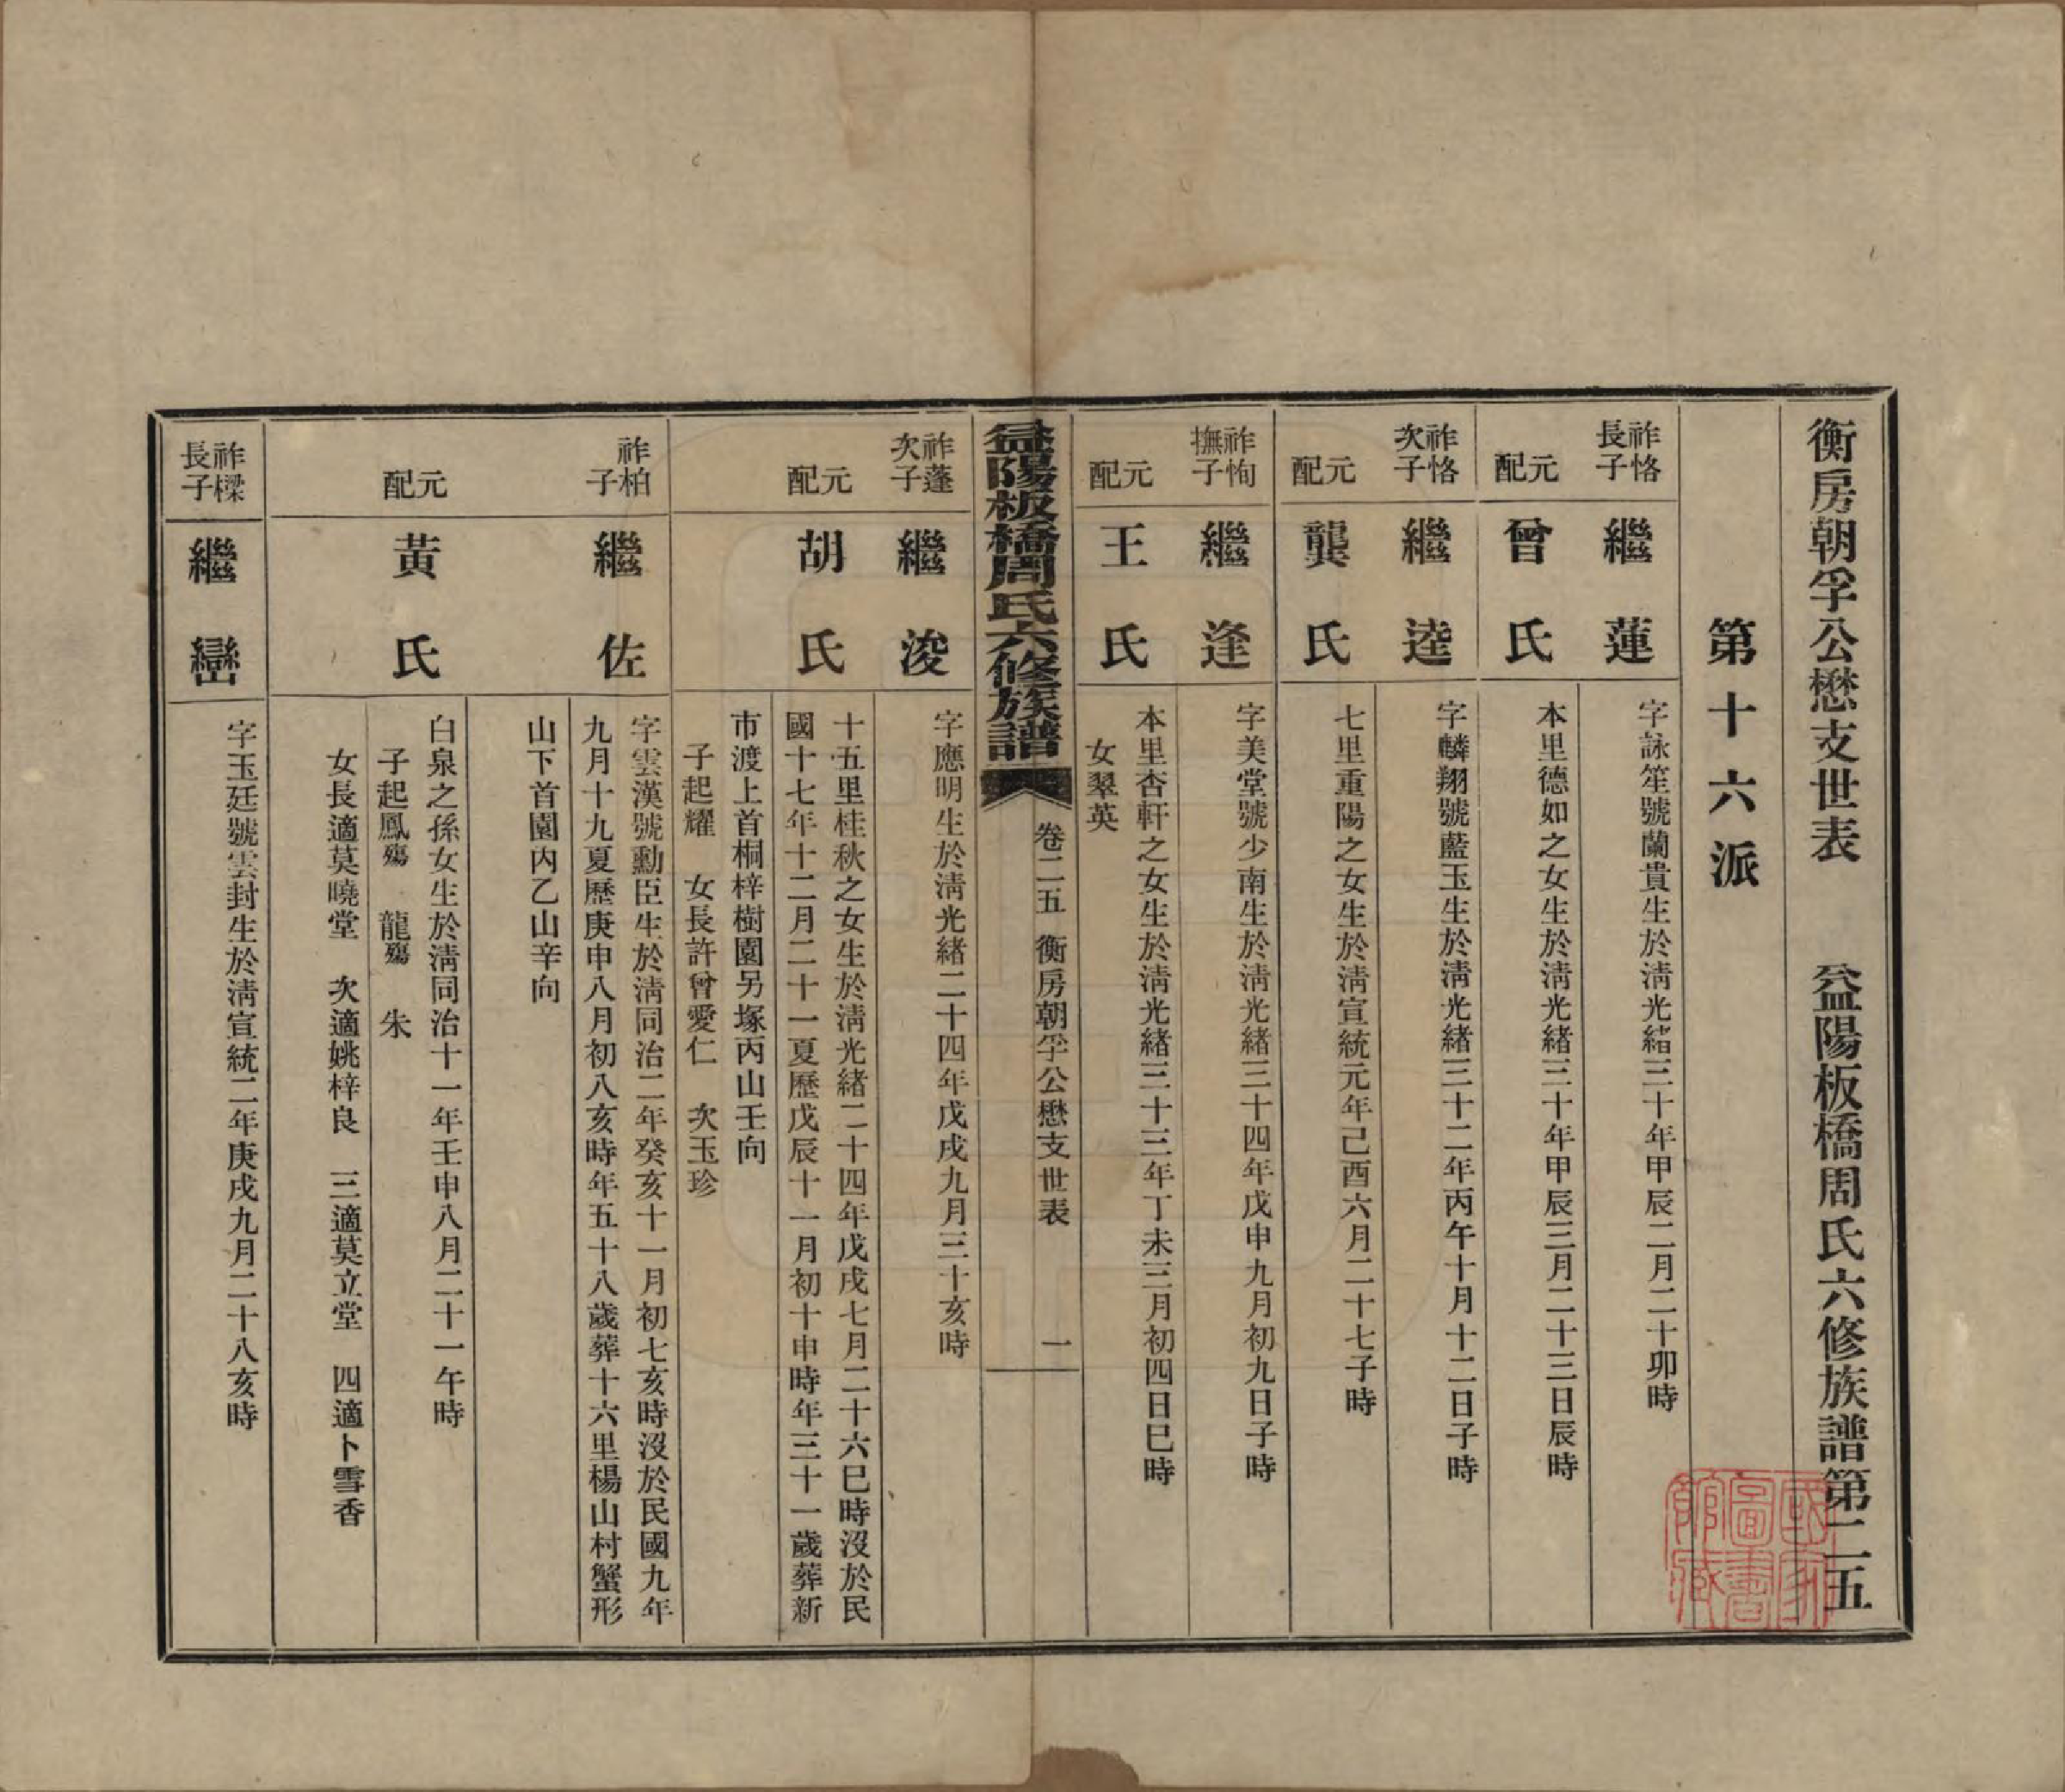 衡房朝孚公懋支世表　益陽板橋周氏六修族譜第二五
國家圖書館藏
第十六派
祚恪長子
繼蓮
字詠笙號蘭貴生於淸光緖三十年甲辰二月二十卯時
元配
曾氏
本里德如之女生於淸光緖三十年甲辰三月二十三日辰時
祚恪次子
繼逵
字麟翔號藍玉生於淸光緖三十二年丙午十月十二日子時
元配
龔氏
七里重陽之女生於淸宣統元年己酉六月二十七子時
祚恂撫子
繼逢
字美堂號少南生於淸光緖三十四年戊申九月初九日子時
元配
王氏
本里杏軒之女生於淸光緖三十三年丁未三月初四日巳時
女翠英
益陽板橋周氏六修族譜
卷二五　衡房朝孚公懋支世表　一
祚蓬次子
繼浚
字應明生於淸光緖二十四年戊戌九月三十亥時
元配
胡氏
十五里桂秋之女生於淸光緖二十四年戊戌七月二十六巳時沒於民
國十七年十二月二十一夏歷戊辰十一月初十申時年三十一歲葬新
市渡上首桐梓樹園另塚丙山壬向
子起耀　女長許曾愛仁　次玉珍
祚柏子
繼佐
字雲漢號勳臣生於淸同治二年癸亥十一月初七亥時沒於民國九年
九月十九夏歷庚申八月初八亥時年五十八歲葬十六里楊山村蟹形
山下首園內乙山辛向
元配
黃氏
白泉之孫女生於淸同治十一年壬申八月二十一午時
子起鳳殤　龍殤　朱
女長適莫曉堂　次適姚梓良　三適莫立堂　四適卜雪香
祚樑長子
繼巒
字玉廷號雲封生於淸宣統二年庚戌九月二十八亥時